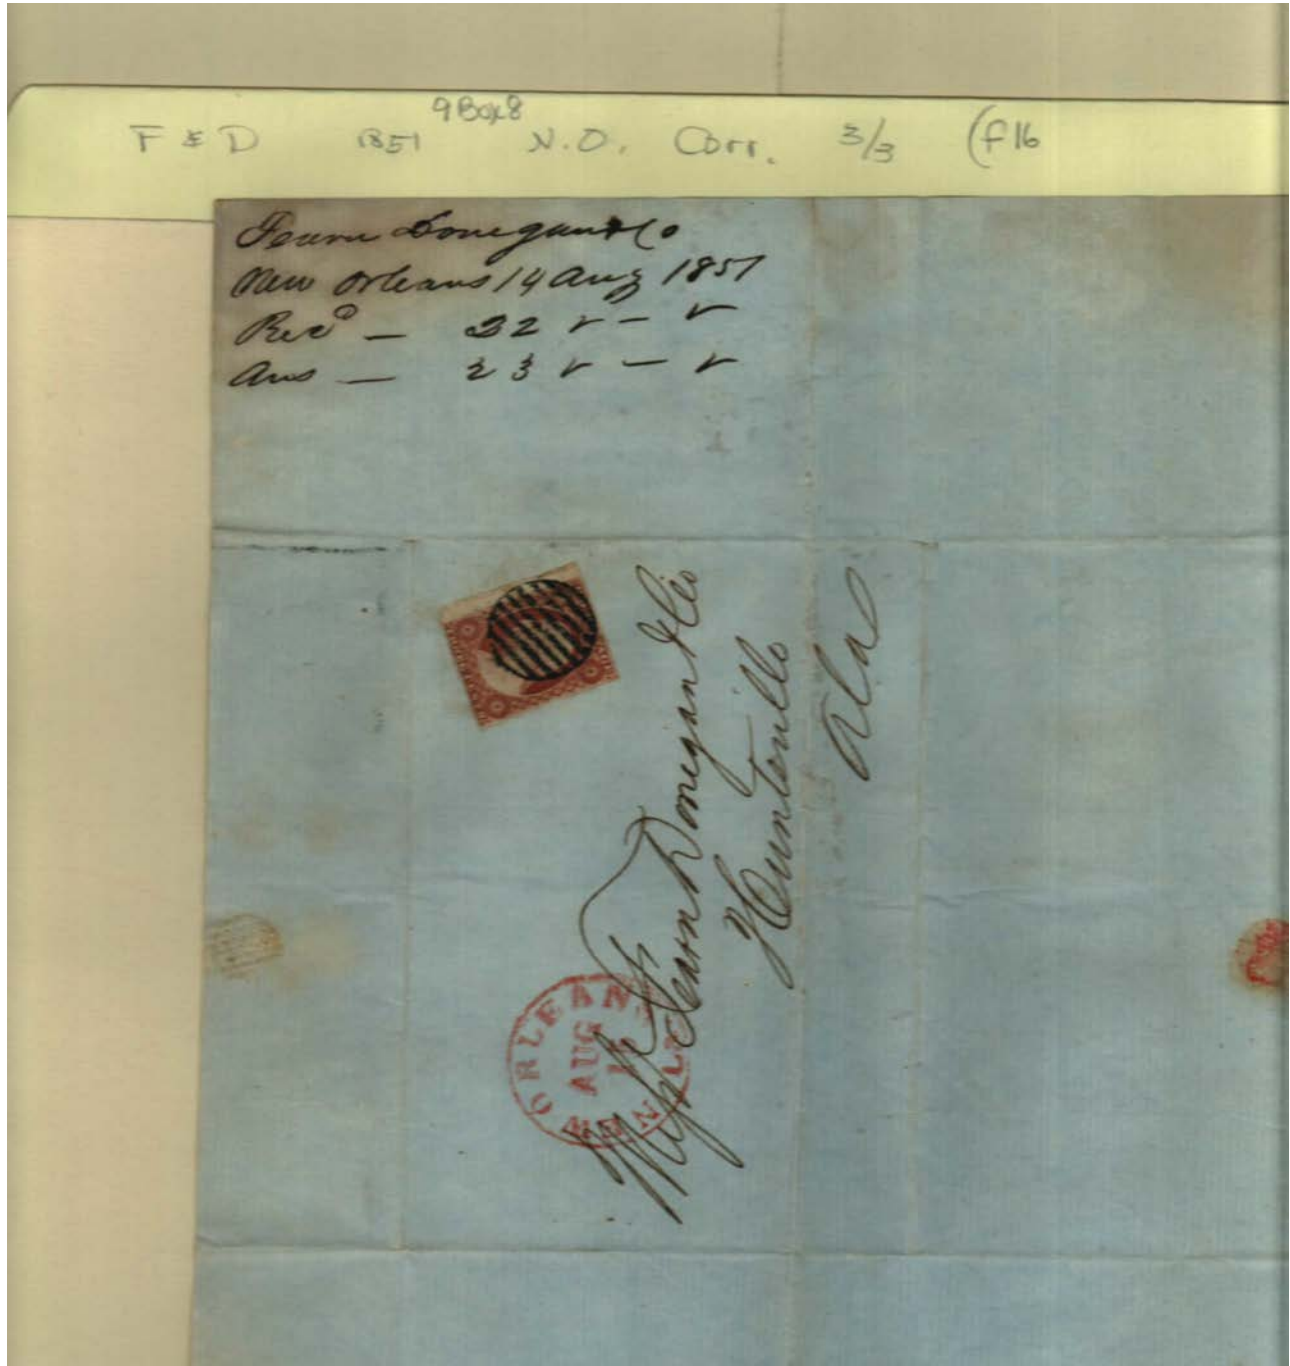 9 Box 8
F & D 1851 N.O. Corr. 3/3 (f 16
Fearn Donegan & Co
New Orleans 14 Aug 1851
Recd — 22 v — v
Ans — 23 v — v
Messrs Fearn Donegan & Co
Huntsville
Ala
NEW ORLEANS
AUG